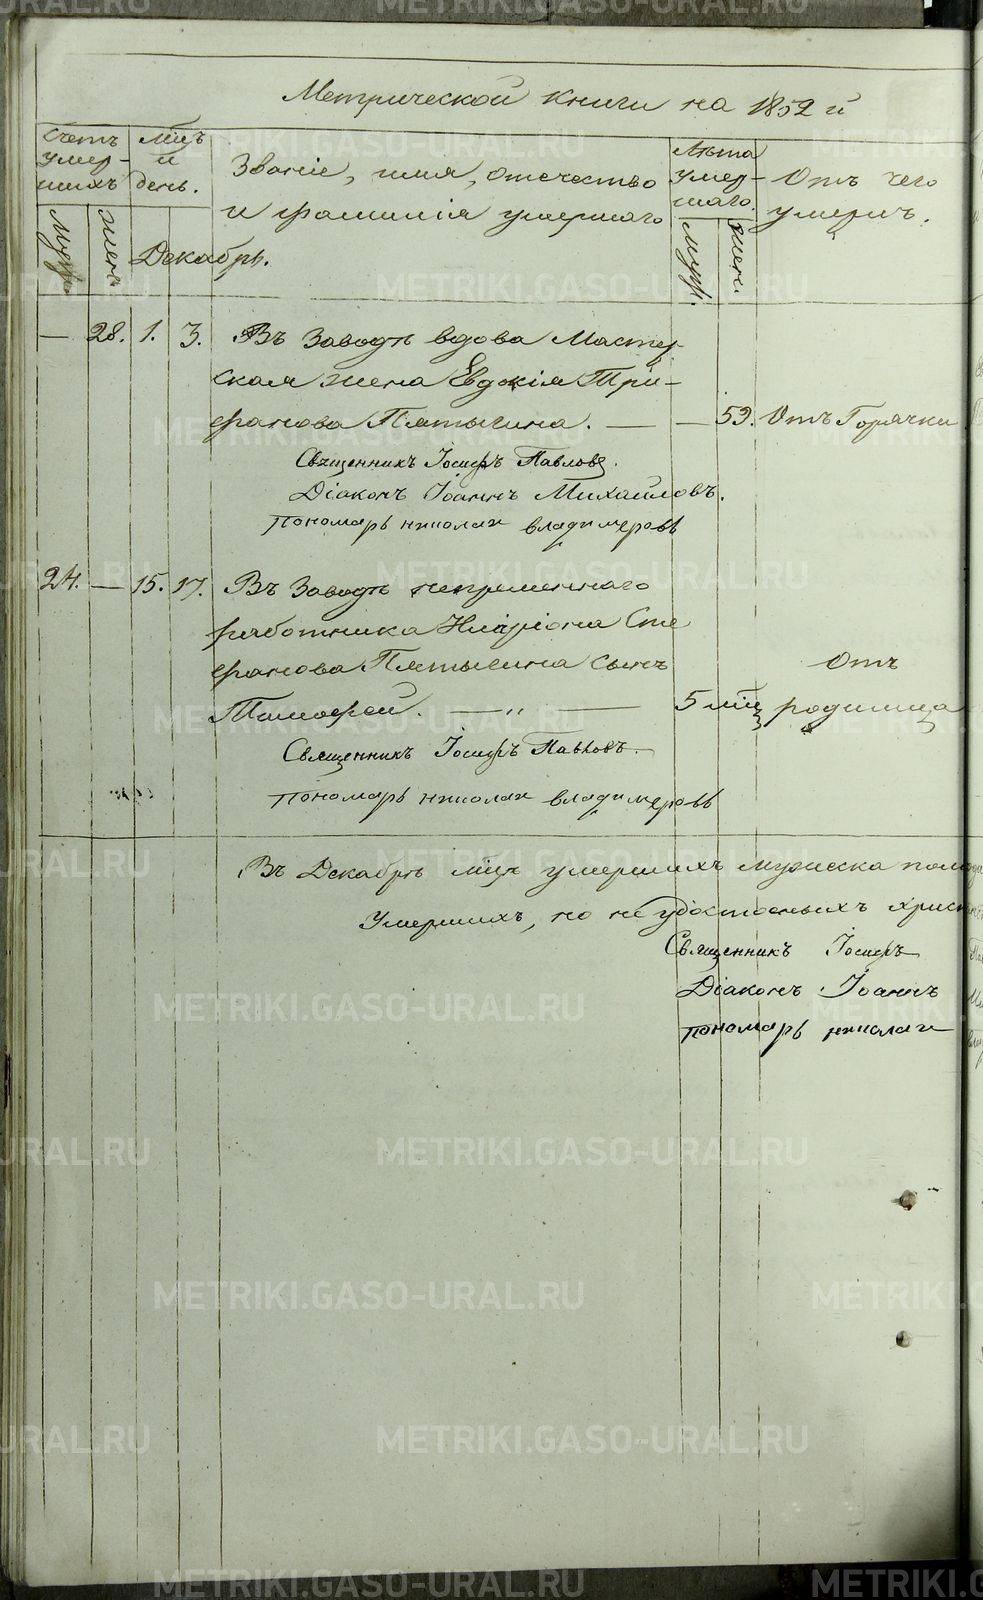 Метрической книги на 1852 й
Счетъ умер-шихъ
Мцъ и день.
Званіе, имя, отечество
и фамилія умершаго
Лѣта умер-шаго.
Отъ чего
умеръ.
Муж.
Жен.
Декабрь.
Муж.
Жен.
— 28. 1. 3. Въ Заводѣ вдова Мастер
ская жена Евдокія Три-
фанова Пятыгина. — — 53. Отъ Горячки
Священникъ Іосифъ Павловъ.
Діаконъ Іоаннъ Михайловъ.
пономарь николаи владимеровъ
24. — 15. 17. Въ Заводѣ непременнаго
работника Иларіона Сте
фанова Пятыгина сынъ
Тимофей. — „ — 5 мцъ Отъ
родимца
Священникъ Іосифъ Павловъ.
пономарь николаи владимеровъ
Въ Декабрѣ мцѣ умершихъ мужеска
Умершихъ, но не удостоеныхъ
Священникъ Іосифъ
Діаконъ Іоаннъ
пономарь николаи
METRIKI.GASO-URAL.RU